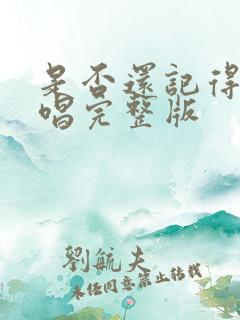 是否還記得
唱完整版
劉航夫
未经同意禁止转载